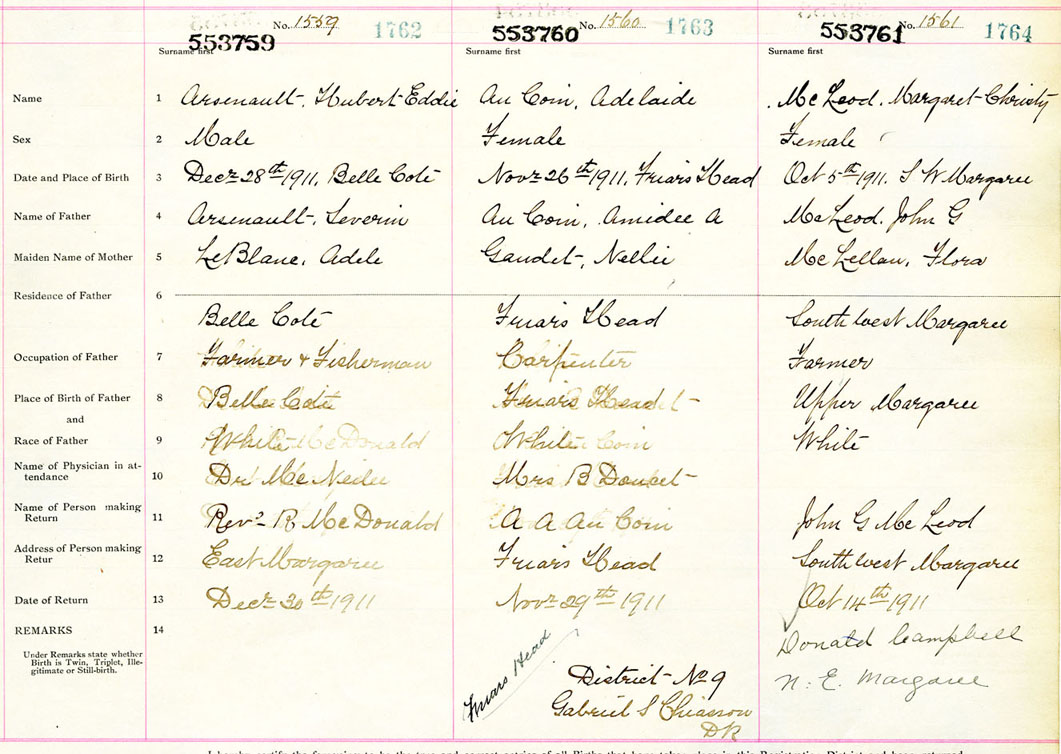 No. 1559 1762 No. 1560 1763 No. 1561 1764
553759 553760 553761
Surname first Surname first Surname first
Name 1 Arsenault, Hubert Eddie Au Coin, Adelaide McLeod, Margaret-Christy
Sex 2 Male Female Female
Date and Place of Birth 3 Decr 28th 1911, Belle Coté Novr 26th 1911, Friars Head Oct 5th 1911. S W Margaree
Name of Father 4 Arsenault, Severin Au Coin, Amidee A McLeod, John G
Maiden Name of Mother 5 LeBlanc, Adele Gaudet, Nellie McLellan, Flora
Residence of Father 6
Belle Coté Friars Head South west Margaree
Occupation of Father 7 Farmer & Fisherman Carpenter Farmer
Place of Birth of Father 8 Belle Coté Friars Head Upper Margaree
and
Race of Father 9 White White White
Name of Physician in at-
tendance 10 Dr McNeil Mrs B Doucet
Name of Person making
Return 11 Revd R McDonald A A Au Coin John G McLeod
Address of Person making
Retur 12 East Margaree Friars Head South west Margaree
Date of Return 13 Decr 30th 1911 Novr 29th 1911 Oct 14th 1911
REMARKS 14 Donald Campbell
Under Remarks state whether
Birth is Twin, Triplet, Ille-
gitimate or Still-birth.
N. E. Margaree
Friars Head
District No 9
Gabriel S Chiasson
DR